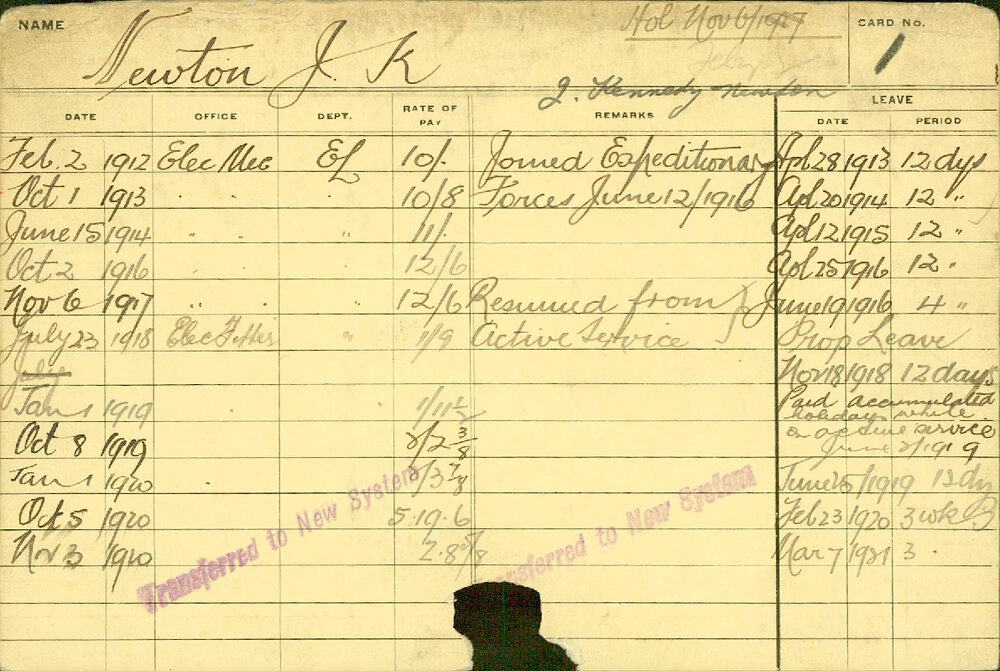 NAME Hol Nov 6/1917 CARD No.
Newton J. K 1
J. Kennedy Newton
LEAVE
DATE OFFICE DEPT. RATE OF PAY REMARKS DATE PERIOD
Feb. 2 1912 Elec Mec El 10/- Joined Expeditionary Apl 28 1913 12 dys
Oct 1 1913 " " 10/8 Forces June 12/1916 Apl 20 1914 12 "
June 15 1914 " " 11/- Apl 12 1915 12 "
Oct 2 1916 " " 12/6 Apl 25 1916 12 "
Nov 6 1917 " " 12/6 Resumed from June 19 1916 4 "
July 23 1918 Elec Fitter " 1/9 Active Service Prop Leave
July Nov 18 1918 12 days
Jan 1 1919 1/11½ Paid accumulated
holidays while
Oct 8 1919 2/2 3/8 on active service
June 2/1919
Jan 1 1920 2/3 7/8 June 25/1919 12 dys
Oct 5 1920 5.19.6 Feb 23 1920 3 wk B
Nov 3 1920 2.8 5/8 Mar 7 1921 3 "
Transferred to New System
Transferred to New System